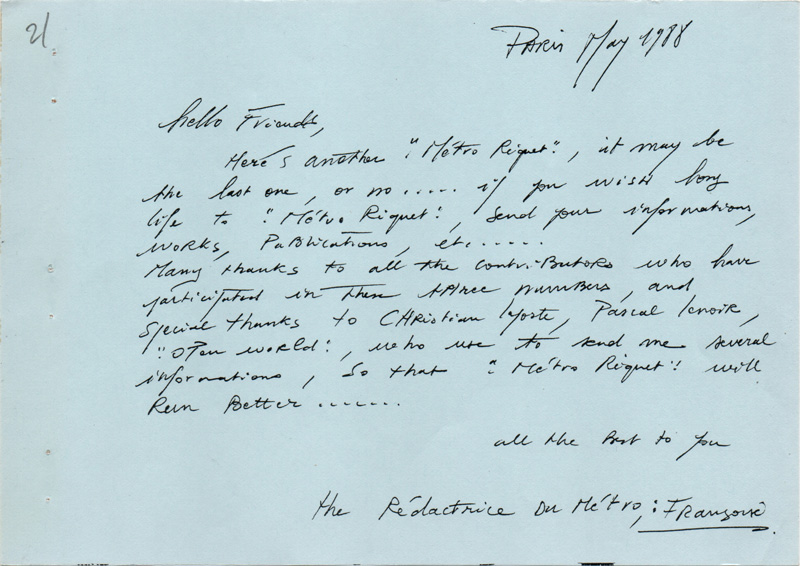 2/
PARIS May 1988
hello Friends,
Here's another "Métro Riquet", it may be
the last one, or no..... if you wish long
life to "Métro Riquet", send your informations,
works, Publications, etc.....
Many thanks to all the contributors who have
participated in these three numbers, and
special thanks to CHristian Laporte, Pascal Lenoir,
"open world", who use to send me several
informations, so that "Métro Riquet" will
Run Better.......
all the best to you
the Rédactrice Du Métro, : Françoise